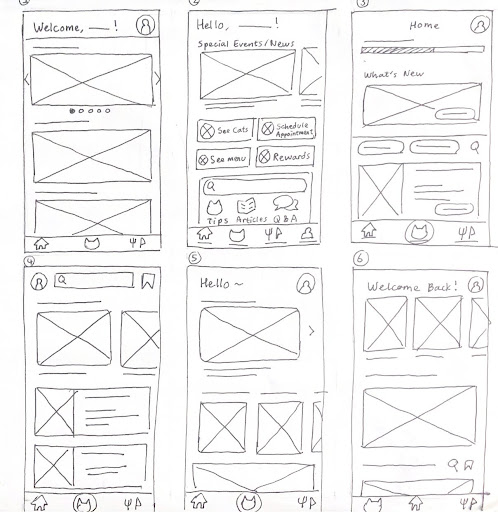 1
Welcome, ___ !
2
Hello, ___ !
Special Events/News
See Cats
Schedule Appointment
See menu
Rewards
Tips Articles Q&A
3
Home
What's New
4
5
Hello ~
6
Welcome Back!